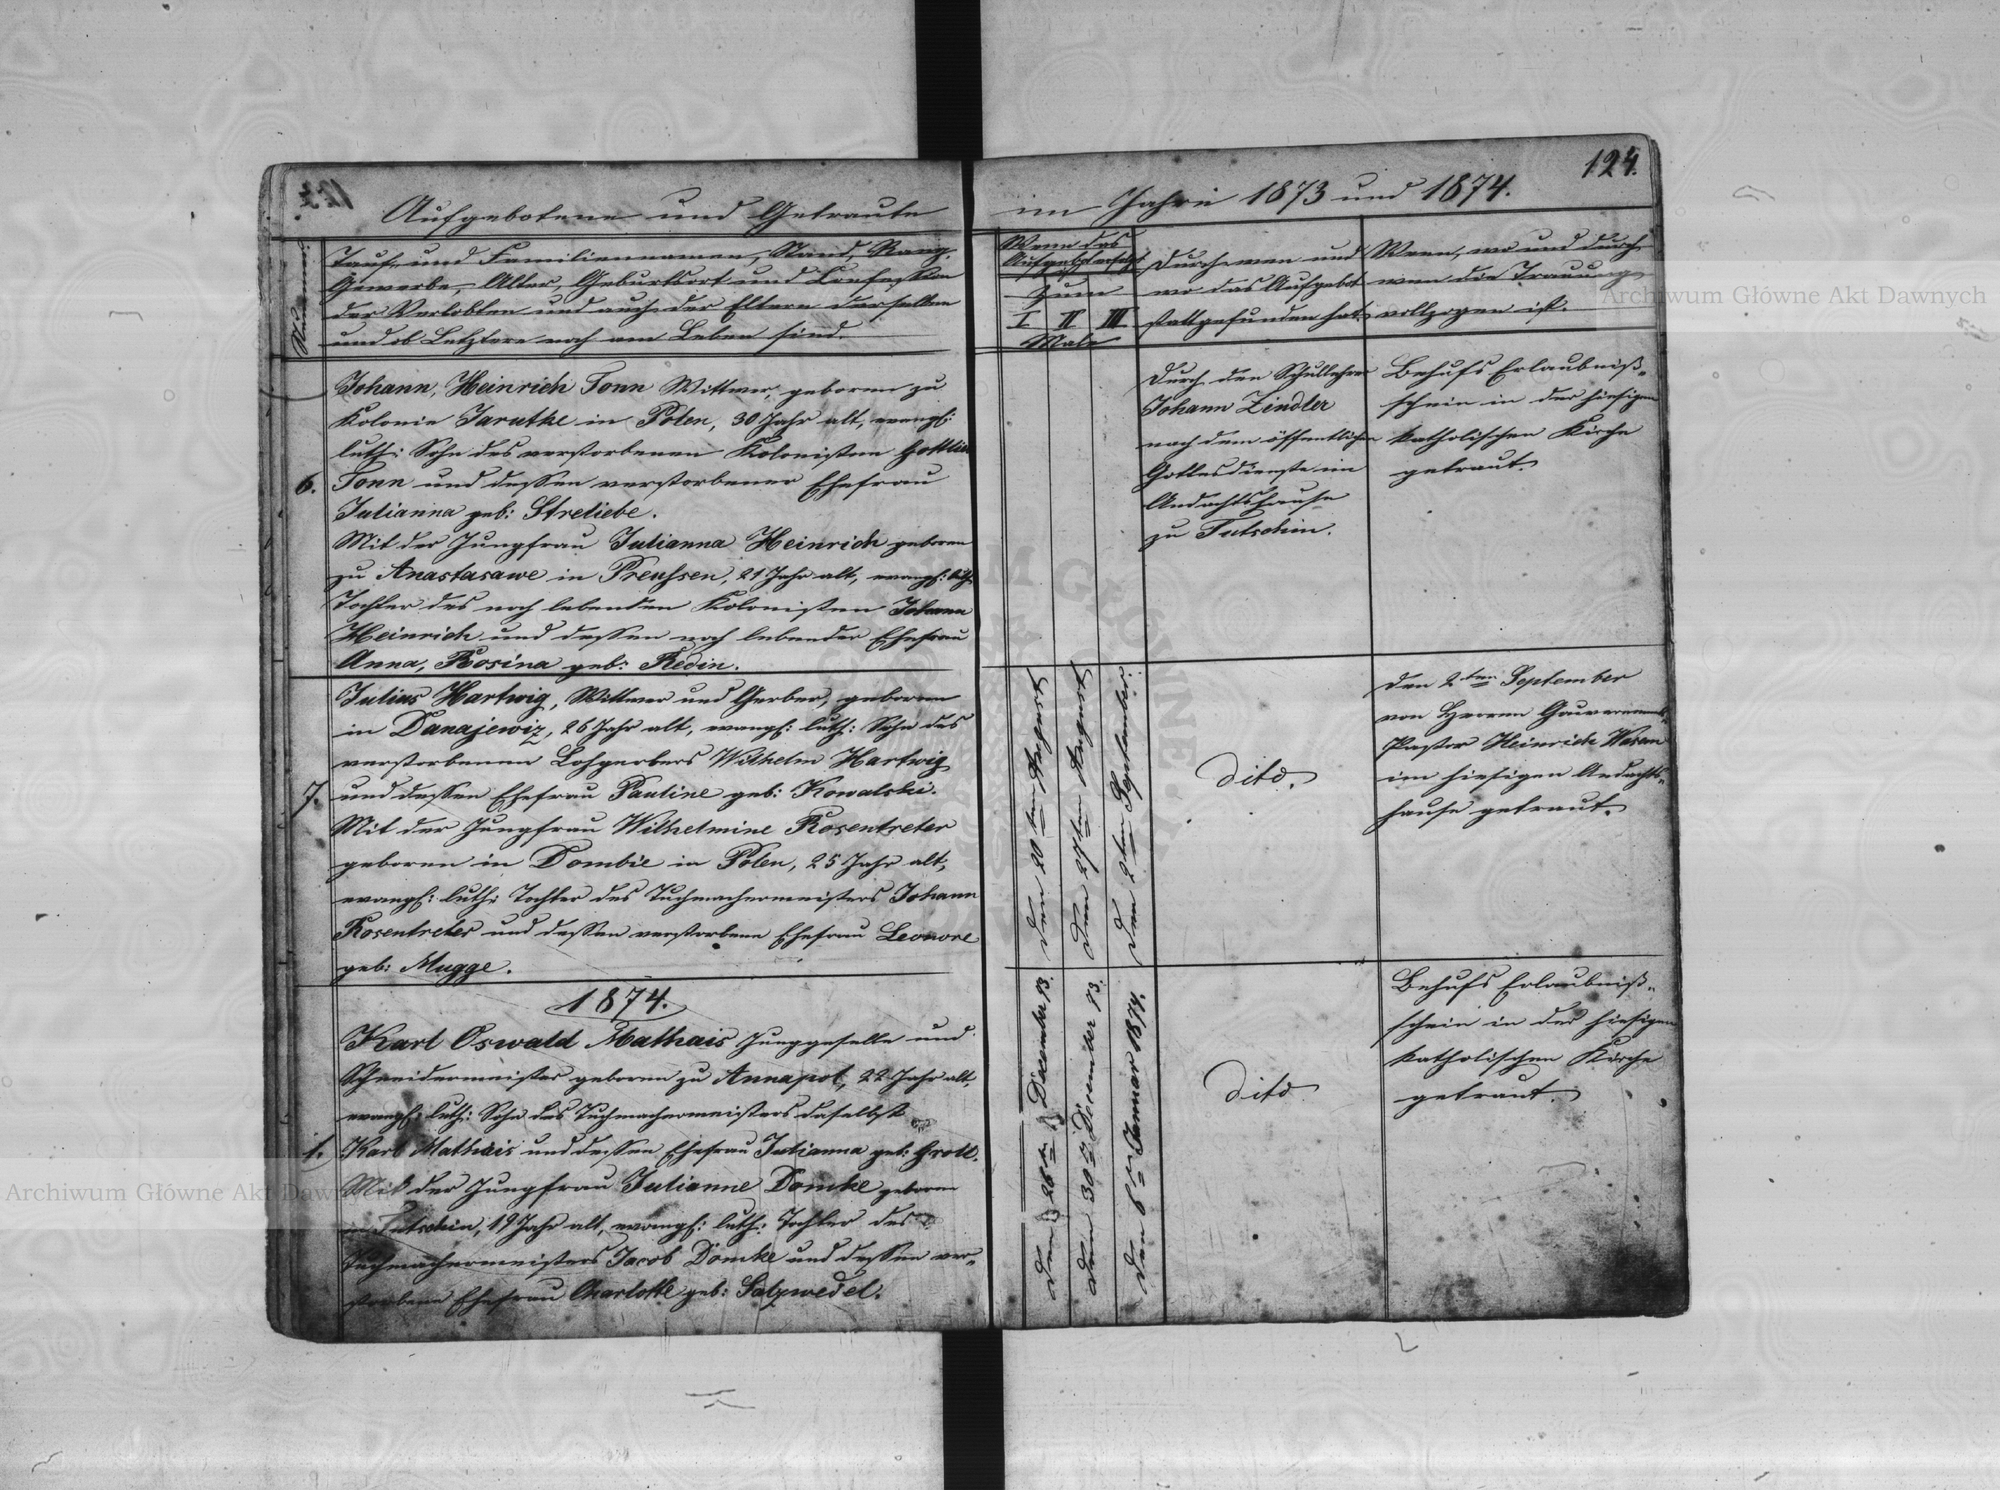 Aufgebotene und Getraute
im Jahre 1873 und 1874.
124.
Tauf- und Familiennamen, Stand, Rang,
Gewerbe, Alter, Geburtsort und Confession
der Verlobten und auch der Eltern derselben
und ob Letztere noch am Leben sind.
Wenn das
Aufgebot
zum
I II III
Male
Durch wen und
wo das Aufgebot
stattgefunden hat.
Wenn, wo und durch
wen die Trauung
vollzogen ist.
6.
Johann, Heinrich Tonn Wittwer, geboren zu
Kolonie Jarutke in Polen, 30 Jahr alt, evangl:
luth: Sohn des verstorbenen Kolonisten Gottlieb
Tonn und dessen verstorbener Ehefrau
Julianna geb: Streliebe.
Mit der Jungfrau Julianna Heinrich geboren
zu Anastasawe in Preußen, 21 Jahr alt, evangl: luth:
Tochter des noch lebenden Kolonisten Johann
Heinrich und dessen noch lebender Ehefrau
Anna, Rosina geb: Redin.
Durch den Schullehrer
Johann Zindler
nach dem öffentlichen
Gottesdienste im
Andachtshause
zu Tutschin.
Behufs Erlaubniß-
schein in der hiesigen
katholischen Kirche
getraut.
7.
Julius Hartwig, Wittwer und Gerber, geboren
in Danajewiz, 26 Jahr alt, evangl: luth: Sohn des
verstorbenen Lohgerbers Wilhelm Hartwig
und dessen Ehefrau Pauline geb: Kowalski.
Mit der Jungfrau Wilhelmine Rosentreter
geboren in Dombie in Polen, 25 Jahr alt,
evangl: luth: Tochter des Tuchmachermeisters Johann
Rosentreter und dessen verstorbene Ehefrau Leonore
geb: Mugge.
den 20ten August
den 27ten August
den 2ten September.
dito.
den 2ten September
von Herrn
Pastor Heinrich Wasem
im hiesigen Andachts-
hause getraut.
1874.
1.
Karl Oswald Mathais Junggeselle und
Schneidermeister geboren zu Annapol, 22 Jahr alt,
evangl: luth: Sohn des Tuchmachermeisters daselbst
Karl Mathais und dessen Ehefrau Julianna geb: Groll.
Mit der Jungfrau Julianne Domke geboren
in Tutschin, 19 Jahr alt, evangl: luth: Tochter des
Tuchmachermeisters Jacob Domke und dessen ver-
storbene Ehefrau Charlotte geb: Salzwedel.
den 26ten December 73.
den 30ten December 73.
den 6ten Januar 1874.
dito
Behufs Erlaubniß-
schein in der hiesigen
katholischen Kirche
getraut.
Archiwum Główne Akt Dawnych
Archiwum Główne Akt Dawnych